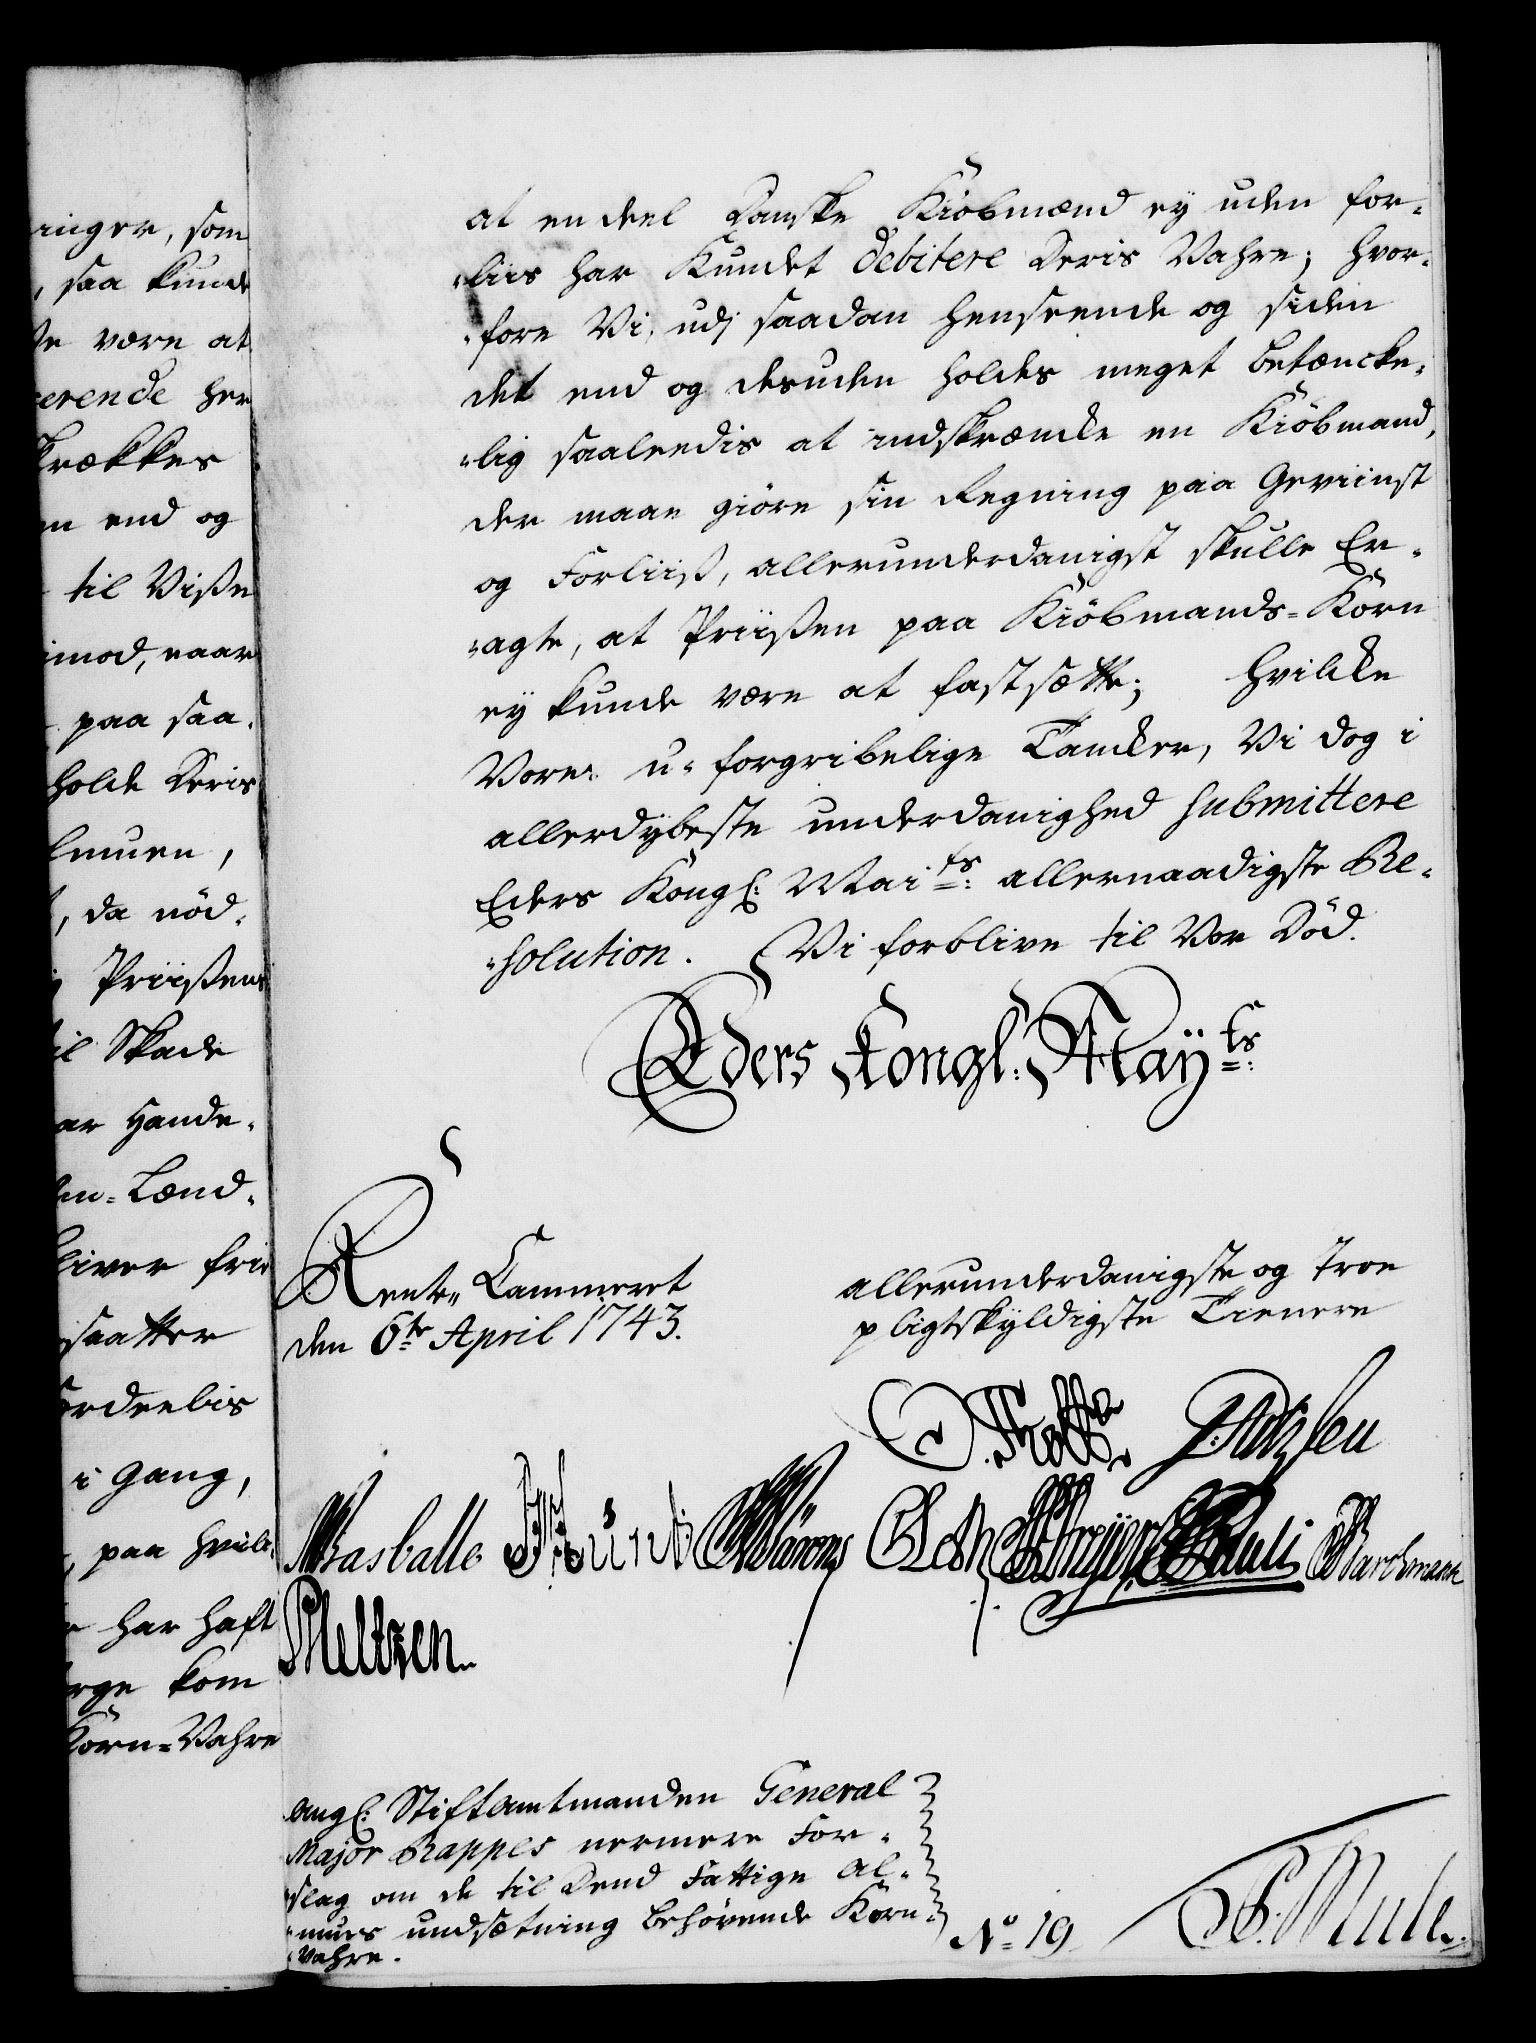 inger, som
, saa kunde
te være at
erende her
krækkes
en end og
til Viße
imod, naar
paa saa-
holde deris
lmuen,
, da nöd-
Priißens
til Skade
ar Hande-
en-Lænd-
liver frie
saatter
ordeelis
i Gang,
, paa hvilc-
har haft
rge kom
Korn-Vahre
at en deel Danske Kiöbmænd ey uden for-
-liis har Kundet debitere deris Vahre; hvor-
-fore Vi, udj saadan henseende og siden
det end og desuden holdes meget betæncke-
-lig saaleedis at indskræncke en Kiöbmand,
der maae giöre sin Regning paa Geviinst
og Forliiß, allerunderdanigst skulle Er-
-agte, at Priißen paa Kiöbmands-Korn
ey kunde være at fastsætte; hvilcke
Vore u-forgribelige Tancker, Vi dog i
allerdybeste underdanighed submittere
Eders Kongl: Mai<sup>ts</sup>: allernaadigste Re-
-solution. Vi forblive til Vor Död.
Eders Kongl: May<sup>ts</sup>:
Rente-Cammeret
den 6<sup>te</sup> April 1743.
allerunderdanigste og troe
pligtskyldigste Tienere
O. Thott
Wasballe
Schreyer
Pauli
Barchmann
Meltzen
ang<sup>l</sup>: Stiftamtmanden General
Major Rappes nermere For-
-slag om de til Dend Fattige Al-
-mues undsætning behövende Korn-
-Vahre.
N<sup>o</sup> 19
Mule